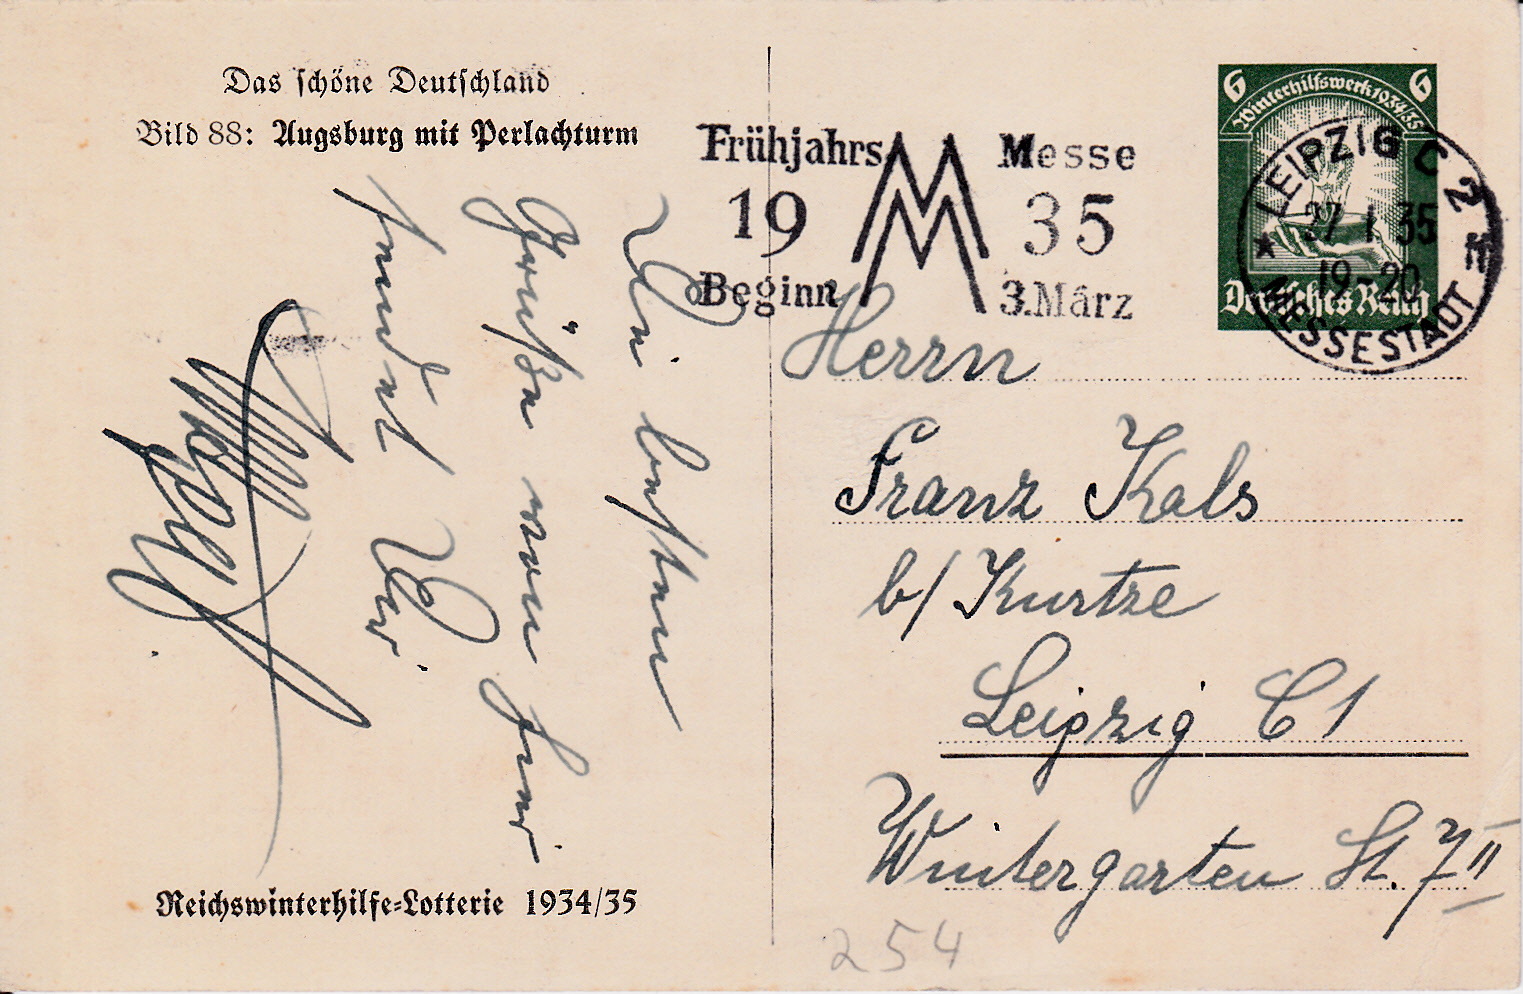 Das schöne Deutschland
Bild 88: Augsburg mit Perlachturm
Die besten
Grüße von hier
sendet Dir
Reichswinterhilfe=Lotterie 1934/35
Frühjahrs Messe
19 35
Beginn 3.März
6 6
Winterhilfswerk 1934/35
Deutsches Reich
LEIPZIG C 2
27 1 35
19-20
MESSESTADT
Herrn
Franz Kals
b/ Kurtze
Leipzig C 1
Wintergarten St. 7 II
254